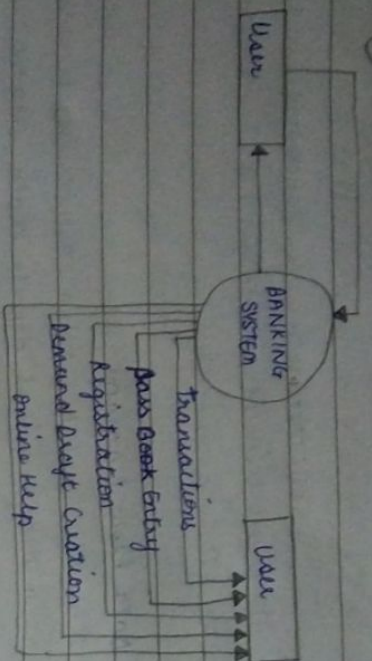 User
BANKING
SYSTEM
User
Transactions
Pass Book Entry
Registration
Demand Draft Creation
Online Help